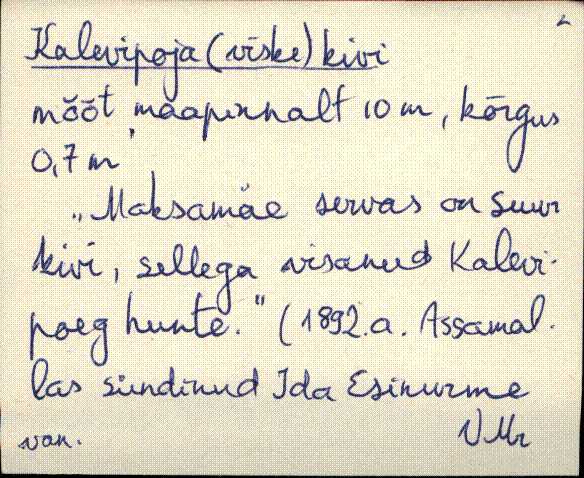 Kalevipoja (viske) kivi
mõõt maapinnalt 10 m, kõrgus
0,7 m
„Maksamäe servas on suur
kivi, sellega visanud Kalevi-
poeg hunte.” (1892.a. Assamal-
las sündinud Ida Esinurme
van. VMr